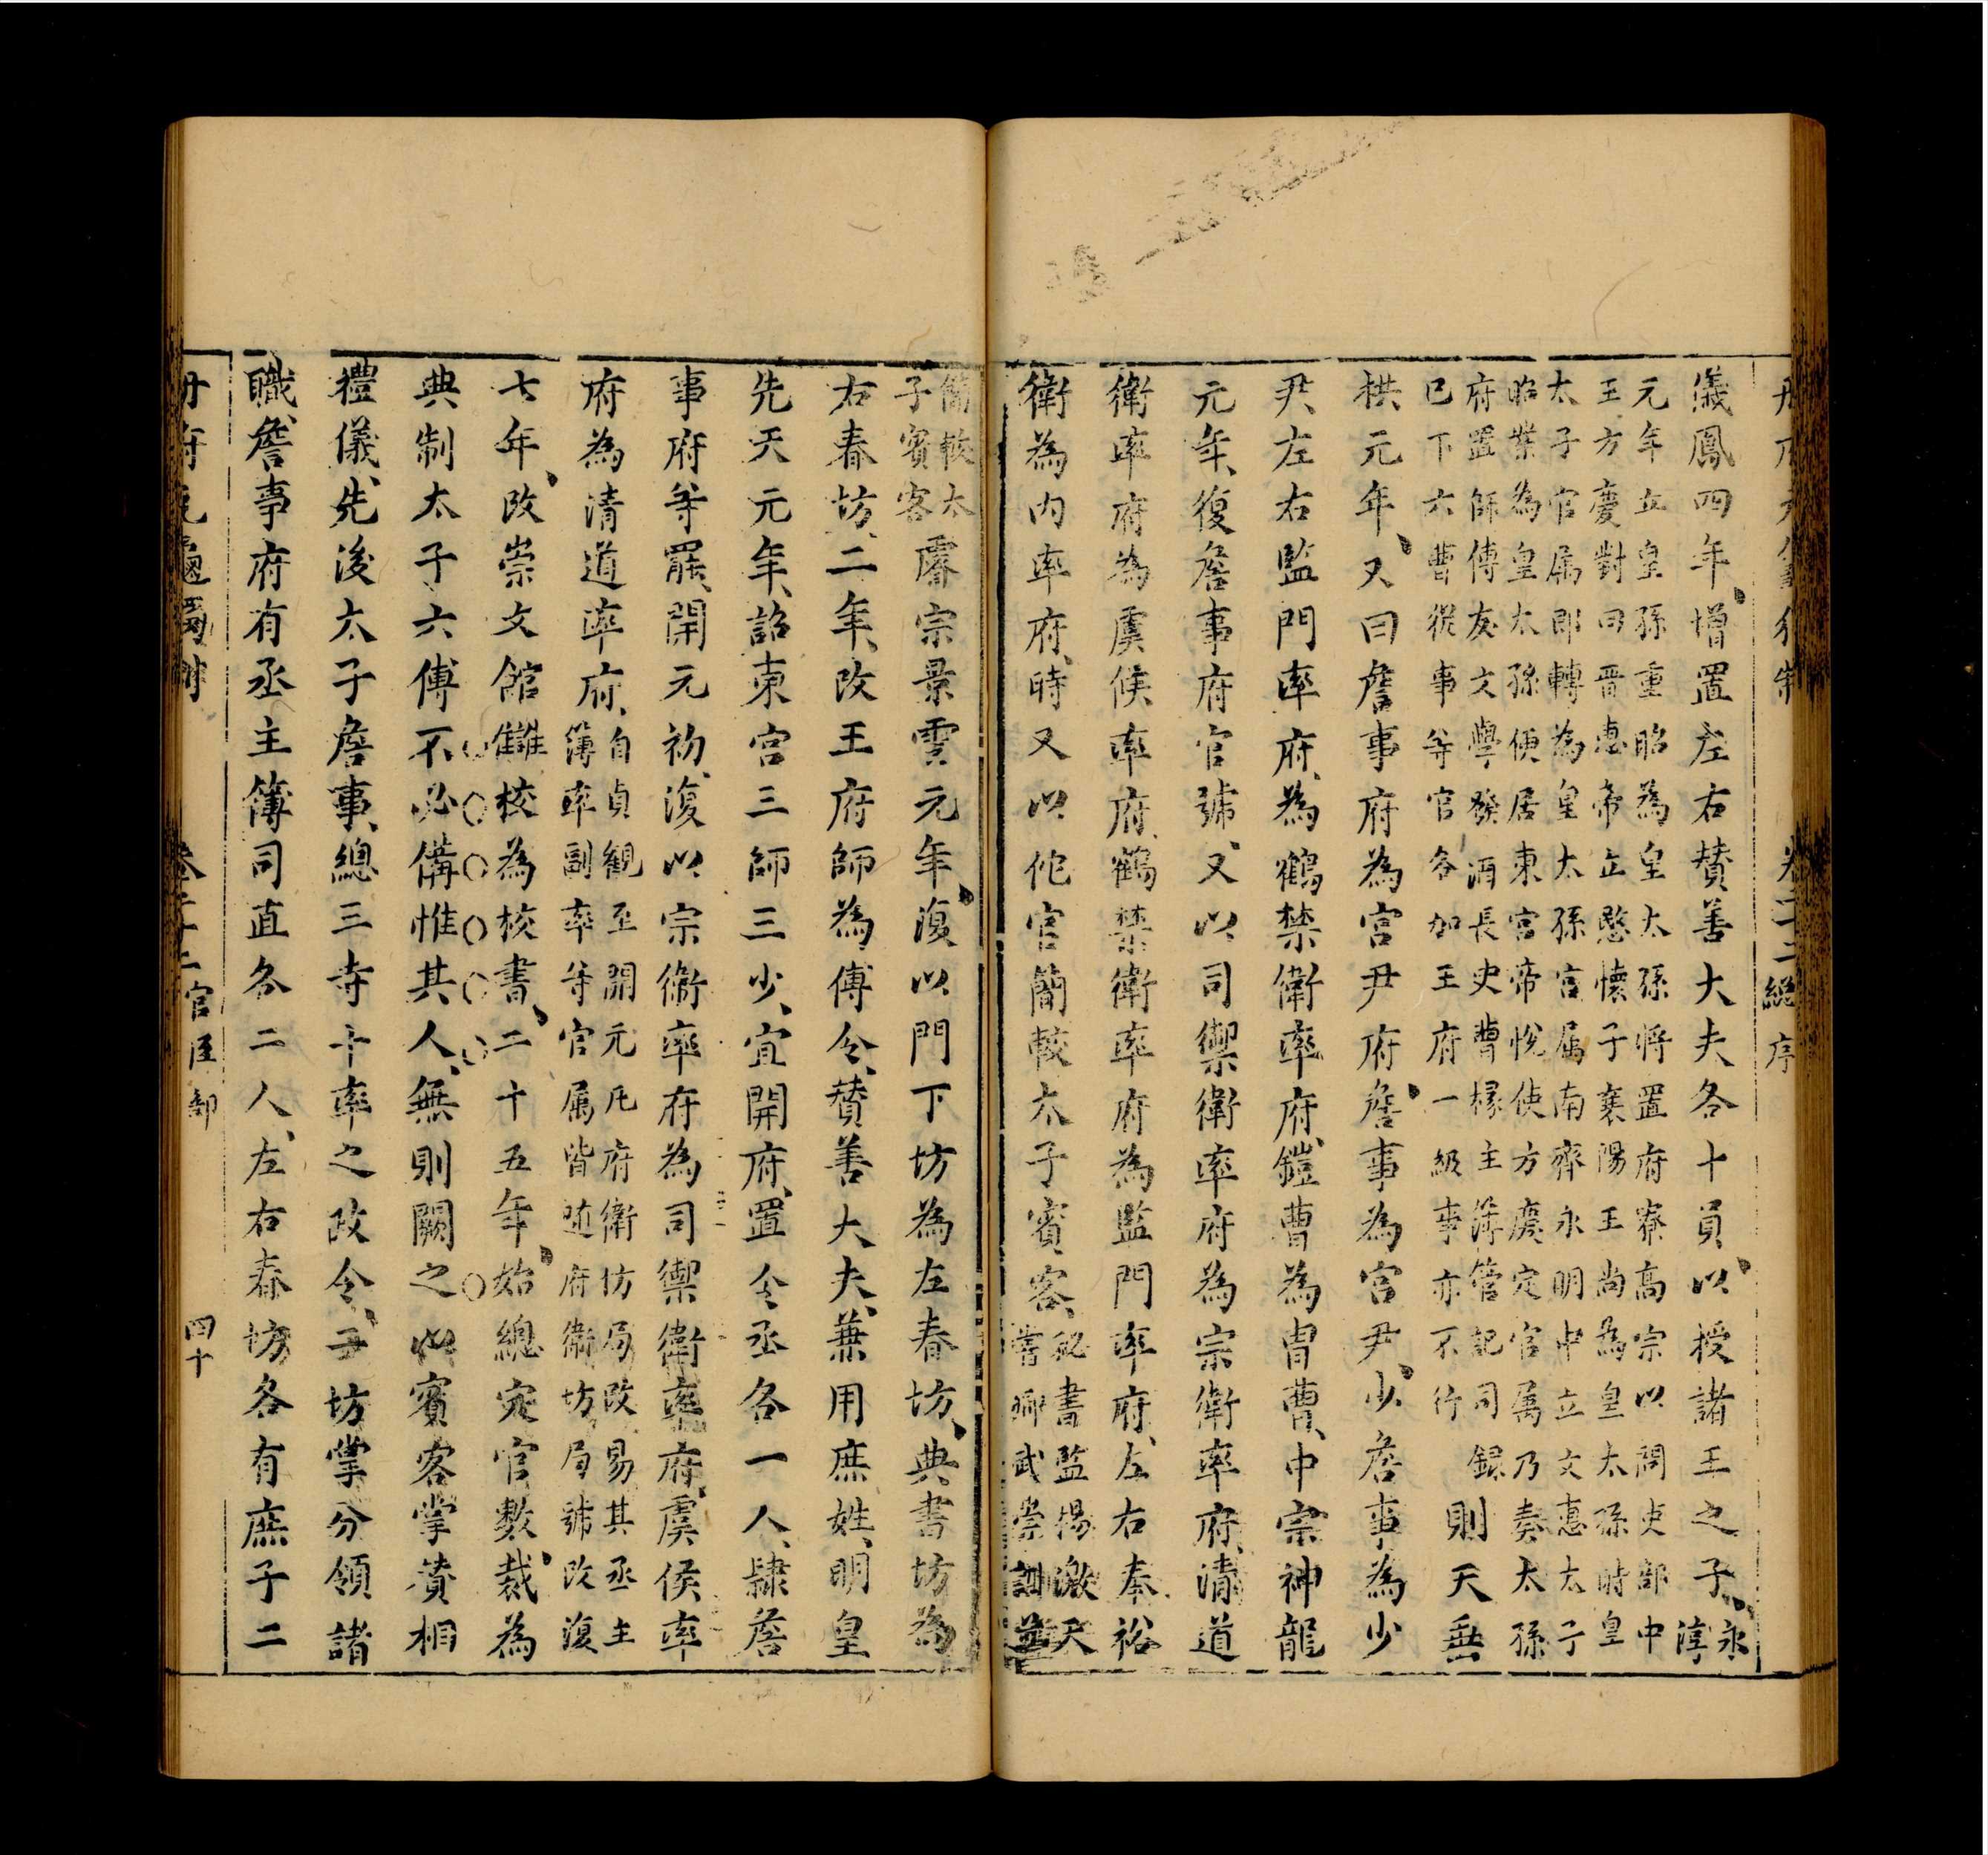 儀鳳四年增置左右賛善大夫各十員以授諸王之子永淳
元年立皇孫重昭為皇太孫將置府寮高宗以問吏部中
王方慶對曰晋惠帝立愍懷子襄陽王尚為皇太孫時皇
太子官属即轉為皇太孫官属南齊永明中立文惠太子
昭業為皇太孫便居東宮帝悅使方慶定官属乃奏太孫
府置師傅友文學祭酒長史曹掾主簿管記司錄
已下六曹從事等官各加王府一級事亦不行
則天垂
拱元年又曰詹事府為宮尹府詹事為宮尹少詹事為少
尹左右監門率府為鶴禁衛率府鎧曹為胄曹中宗神龍
元年復詹事府官號又以司禦衛率府為宗衛率府清道
衛率府為虞候率府鶴禁衛率府為監門率府左右奉裕
衛為內率府時又以他官簡較太子賓客秘書監楊激天
嘗卿武崇訓並
簡較太
子賓客
睿宗景雲元年復以門下坊為左春坊典書坊為
右春坊二年改王府師為傅令賛善大夫兼用庶姓明皇
先天元年詔東宮三師三少宜開府置令丞各一人隸詹
事府等罷開元初復以宗衛率府為司禦衛率府虞侯率
府為清道率府自貞觀至開元凡府衛坊局改易其丞主
簿率副率等官属皆随府衛坊局號改復
七年改崇文館讎校為校書二十五年始總定官數裁為
典制太子六傅不必備惟其人無則闕之以賓客掌賛相
禮儀先後太子詹事總三寺十率之政令二坊掌分領諸
職詹事府有丞主簿司直各二人左右春坊各有庶子二
官臣部
四十